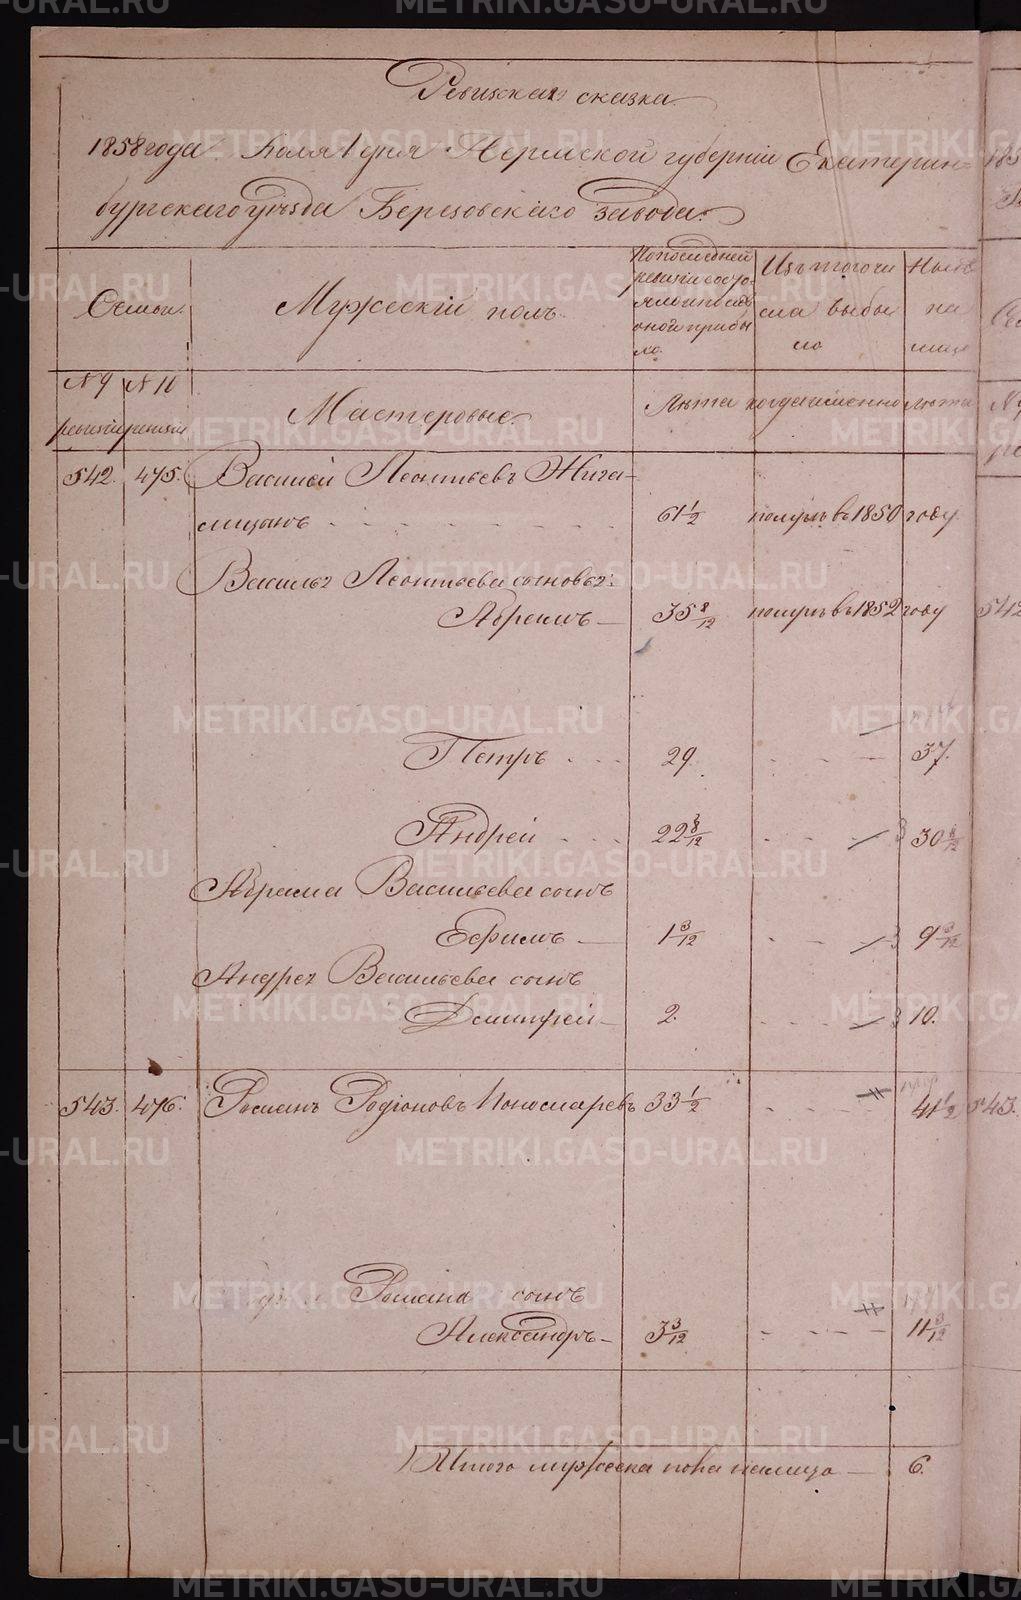 Ревизская сказка.
1858 года Июля 1 дня Пермской губернiи Екатерин=
бургскаго уѣзда Березовскаго завода:
Семьи.
Мужескiй полъ.
По последней
ревизiи состо-
яло и после
оной прибы
ло.
Изъ того чи
сла выбы
ло
Нынѣ
на
лицо
№ 9 № 10
ревизiи ревизiи
Мастеровые.
Лѣта когда именно лѣта
542. 475. Василiй Леонтьевъ Жига-
лицынъ 61 1/2 померъ въ 1850 году
Василья Леонтьева сыновья:
Абрамъ 35 8/12 померъ въ 1852 году
542
Петръ 29. 37.
Андрей 22 3/12 30 3/12
Абрама Васильева сынъ
Ефимъ 1 3/12 9 3/12
Андрея Васильева сынъ
Дмитрей 2. 10.
543. 476. Романъ Родiоновъ Пономаревъ 33 1/2 41 1/2 543.
Романа сынъ
Александръ 3 3/12 11 3/12
Итого мужеска пола налицо 6.
METRIKI.GASO-URAL.RU